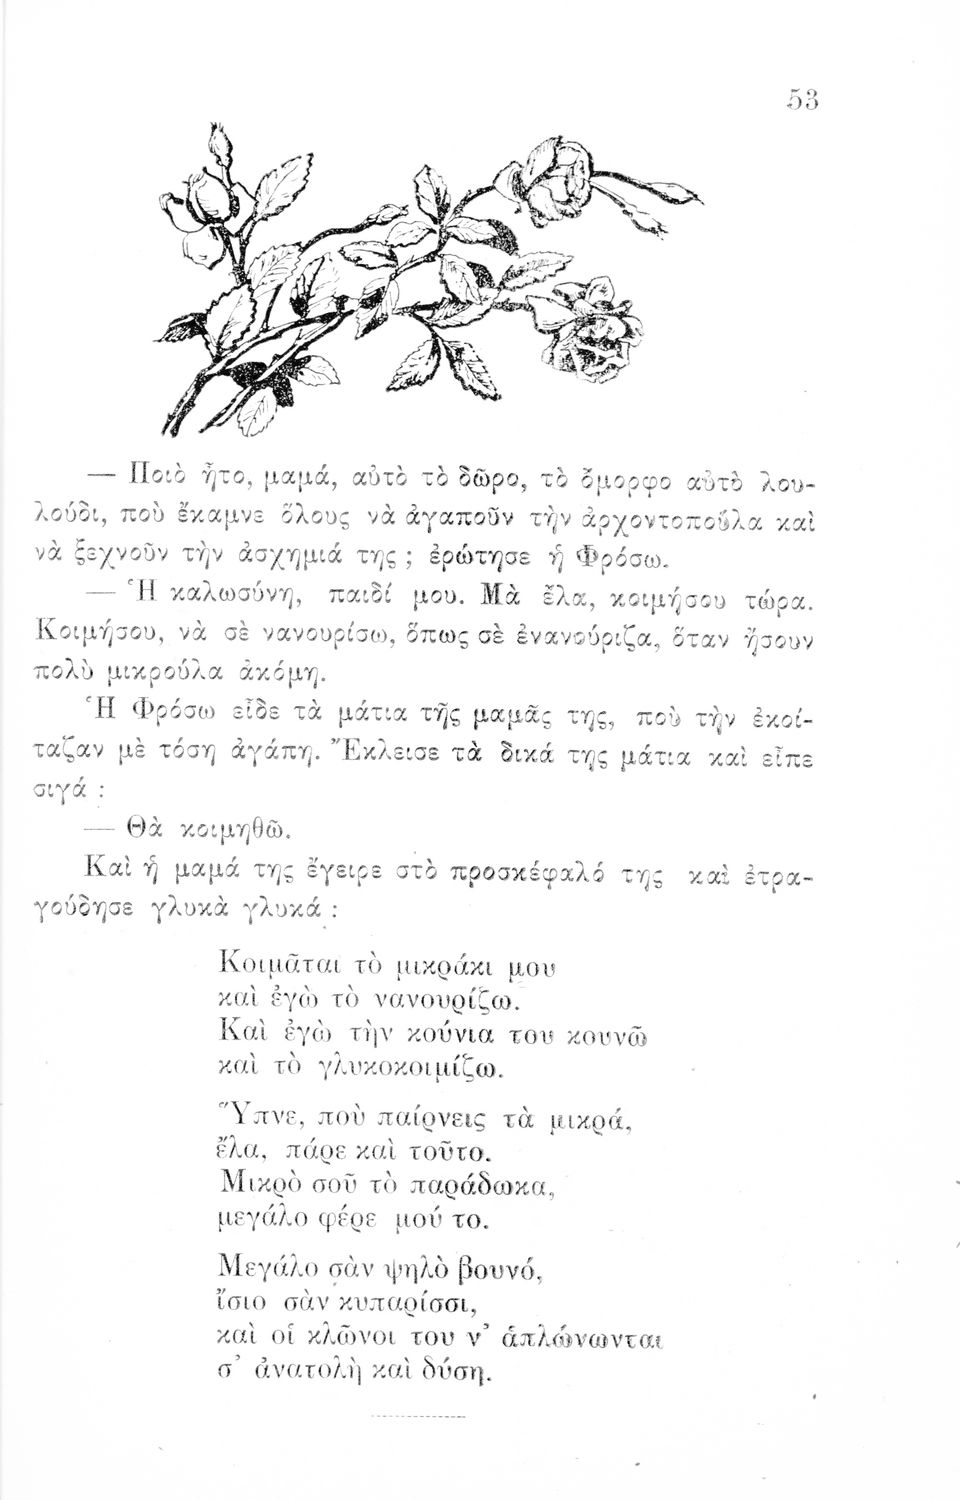 53
— Ποιὸ ἦτο, μαμά, αὐτὸ τὸ δῶρο, τὸ ὄμορφο αὐτὸ λου-
λούδι, ποὺ ἔκαμνε ὅλους νὰ ἀγαποῦν τὴν ἀρχοντοπούλα καὶ
νὰ ξεχνοῦν τὴν ἀσχημιά της ; ἐρώτησε ἡ Φρόσω.
— Ἡ καλωσύνη, παιδί μου. Μὰ ἔλα, κοιμήσου τώρα.
Κοιμήσου, νὰ σὲ νανουρίσω, ὅπως σὲ ἐνανούριζα, ὅταν ἤσουν
πολὺ μικρούλα ἀκόμη.
Ἡ Φρόσω εἶδε τὰ μάτια τῆς μαμᾶς της, ποὺ τὴν ἐκοί-
ταζαν μὲ τόση ἀγάπη. Ἔκλεισε τὰ δικά της μάτια καὶ εἶπε
σιγά :
— Θὰ κοιμηθῶ.
Καὶ ἡ μαμά της ἔγειρε στὸ προσκέφαλό της καὶ ἐτρα-
γούδησε γλυκὰ γλυκά :
Κοιμᾶται τὸ μικράκι μου
καὶ ἐγὼ τὸ νανουρίζω.
Καὶ ἐγὼ τὴν κούνια του κουνῶ
καὶ τὸ γλυκοκοιμίζω.
Ὕπνε, ποὺ παίρνεις τὰ μικρά,
ἔλα, πάρε καὶ τοῦτο.
Μικρὸ σοῦ τὸ παράδωκα,
μεγάλο φέρε μού το.
Μεγάλο σὰν ψηλὸ βουνό,
ἴσιο σὰν κυπαρίσσι,
καὶ οἱ κλῶνοι του ν᾿ ἁπλώνωνται
σ᾿ ἀνατολὴ καὶ δύση.